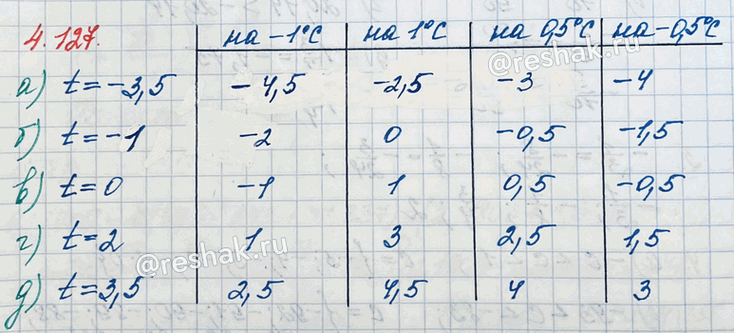 4.127. на -1°C на 1°C на 0,5°C на -0,5°C
@reshak.ru
а) t = -3,5 -4,5 -2,5 -3 -4
б) t = -1 -2 0 -0,5 -1,5
в) t = 0 -1 1 0,5 -0,5
г) t = 2 1 3 2,5 1,5
@reshak.ru
д) t = 3,5 2,5 4,5 4 3